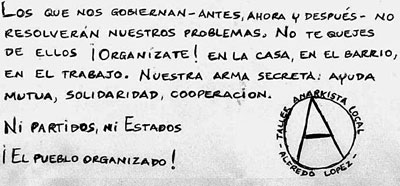 Los que nos gobiernan-antes, ahora y después- no
resolverán nuestros problemas. No te quejes
de ellos ¡Organízate! en la casa, en el barrio,
en el trabajo. Nuestra arma secreta: ayuda
mutua, solidaridad, cooperacion.
Ni partidos, ni Estados
¡El pueblo organizado!
- TALLER ANARKISTA LOCAL
- ALFREDO LOPEZ -
A